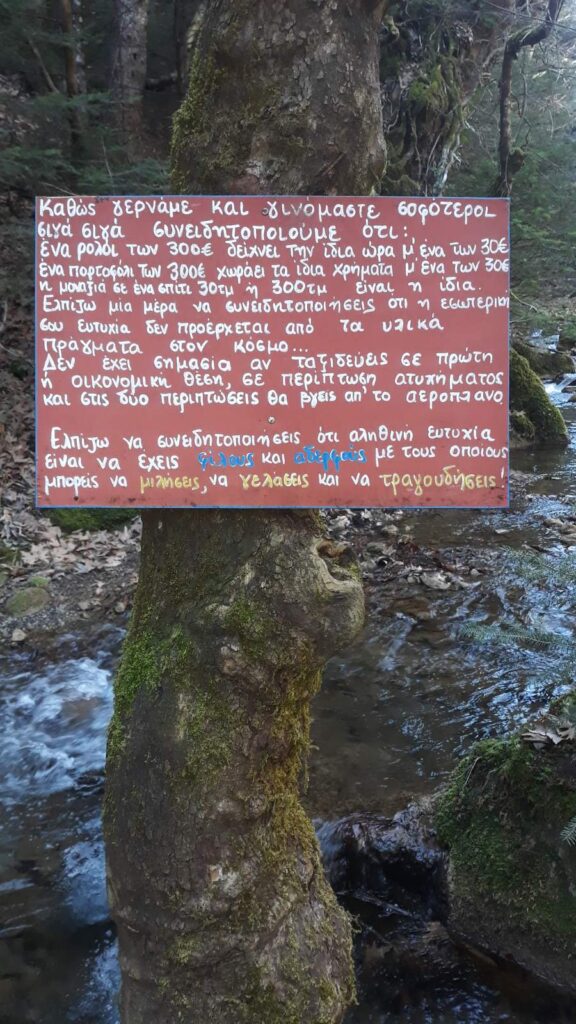 Καθώς γερνάμε και γινόμαστε σοφότεροι
σιγά σιγά συνειδητοποιούμε ότι:
ένα ρολόι των 300€ δείχνει την ίδια ώρα μ' ένα των 30€
ένα πορτοφόλι των 300€ χωράει τα ίδια χρήματα μ' ένα των 30€
η μοναξιά σε ένα σπίτι 30τμ ή 300τμ είναι η ίδια.
Ελπίζω μία μέρα να συνειδητοποιήσεις ότι η εσωτερική
σου ευτυχία δεν προέρχεται από τα υλικά
πράγματα στον κόσμο...
Δεν έχει σημασία αν ταξιδεύεις σε πρώτη
ή οικονομική θέση, σε περίπτωση ατυχήματος
και στις δύο περιπτώσεις θα βγεις απ' το αεροπλάνο
Ελπίζω να συνειδητοποιήσεις ότι αληθινή ευτυχία
είναι να έχεις φίλους και αδερφούς με τους οποίους
μπορείς να μιλήσεις, να γελάσεις και να τραγουδήσεις!